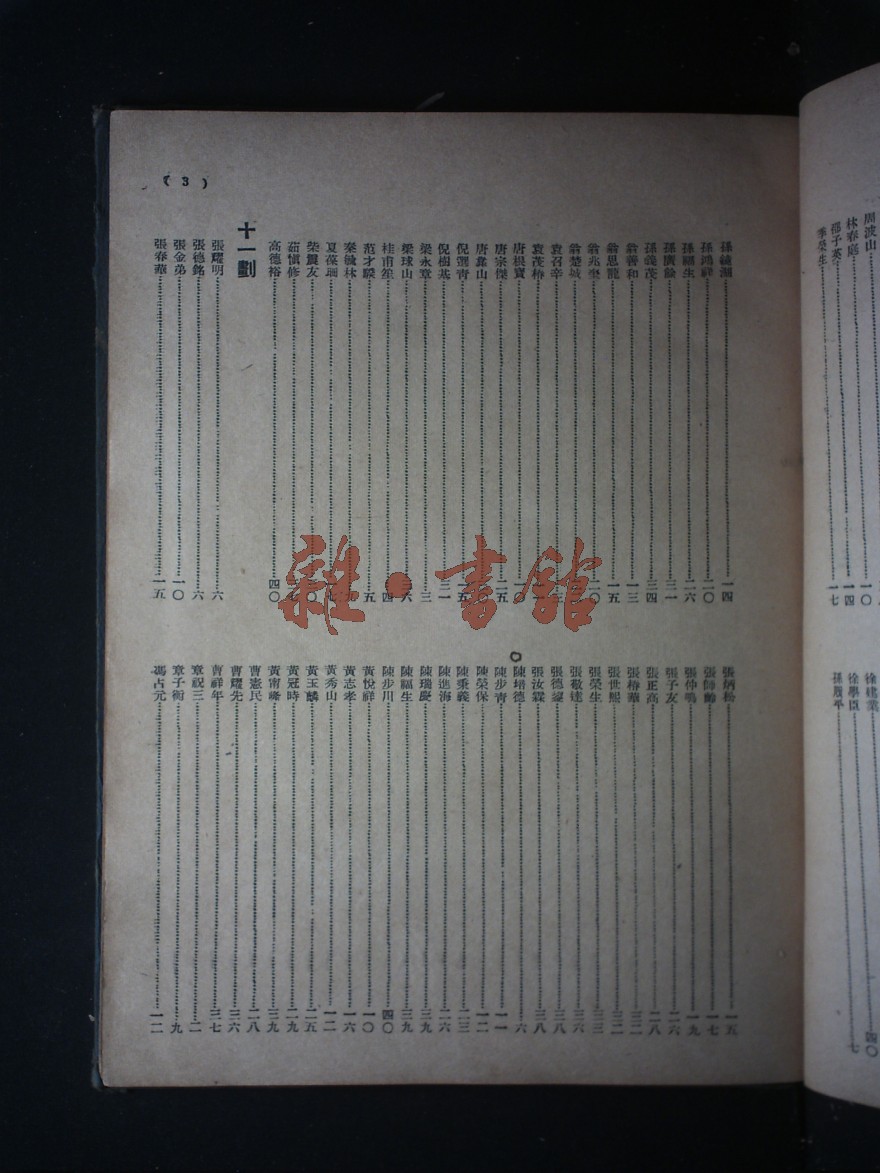 ( 3 )
孫鴻祥 二〇
孫福生 二六
孫廣餘 三一
孫義茂 三四
翁善和 一三
翁思龍 一五
翁兆奎 二〇
翁楚城
袁召辛
袁茂椿
唐根寶
唐宗傑 二五
唐鰲山
倪選青
倪樹基 三一
梁永章 三
梁球山
桂甫笙
范才騤 五
秦毓林
夏葆珊
榮震友
茹愼修
高德裕 四〇
十一劃
張耀明 六
張德銘 六
張金弟 一〇
張春華 一五
張炳楊 一五
張師齡 一七
張仲鳴 一九
張子友 二六
張正高 二八
張椿華 三二
張世熊 三二
張榮生 三三
張敬達 三八
張德鎏 三八
張汝霖 三八
陳培德 六
陳步青 一一
陳榮保 一二
陳秉義 二三
陳進海 二六
陳瑞慶 三九
陳福生 三九
陳步川 四〇
黃悅祥 一〇
黃志孝 一六
黃秀山 一二
黃玉麟 二五
黃冠時 二九
黃南峰 三九
曹憲民 二八
曹耀先 三六
曹祥年 三七
章祝三 二
章子衡 九
馮占元 一二
周波山
林春庭 一〇
邵子英 一四
季榮生 一七
徐建業 四〇
徐學臣 七
孫履平
雜·書館